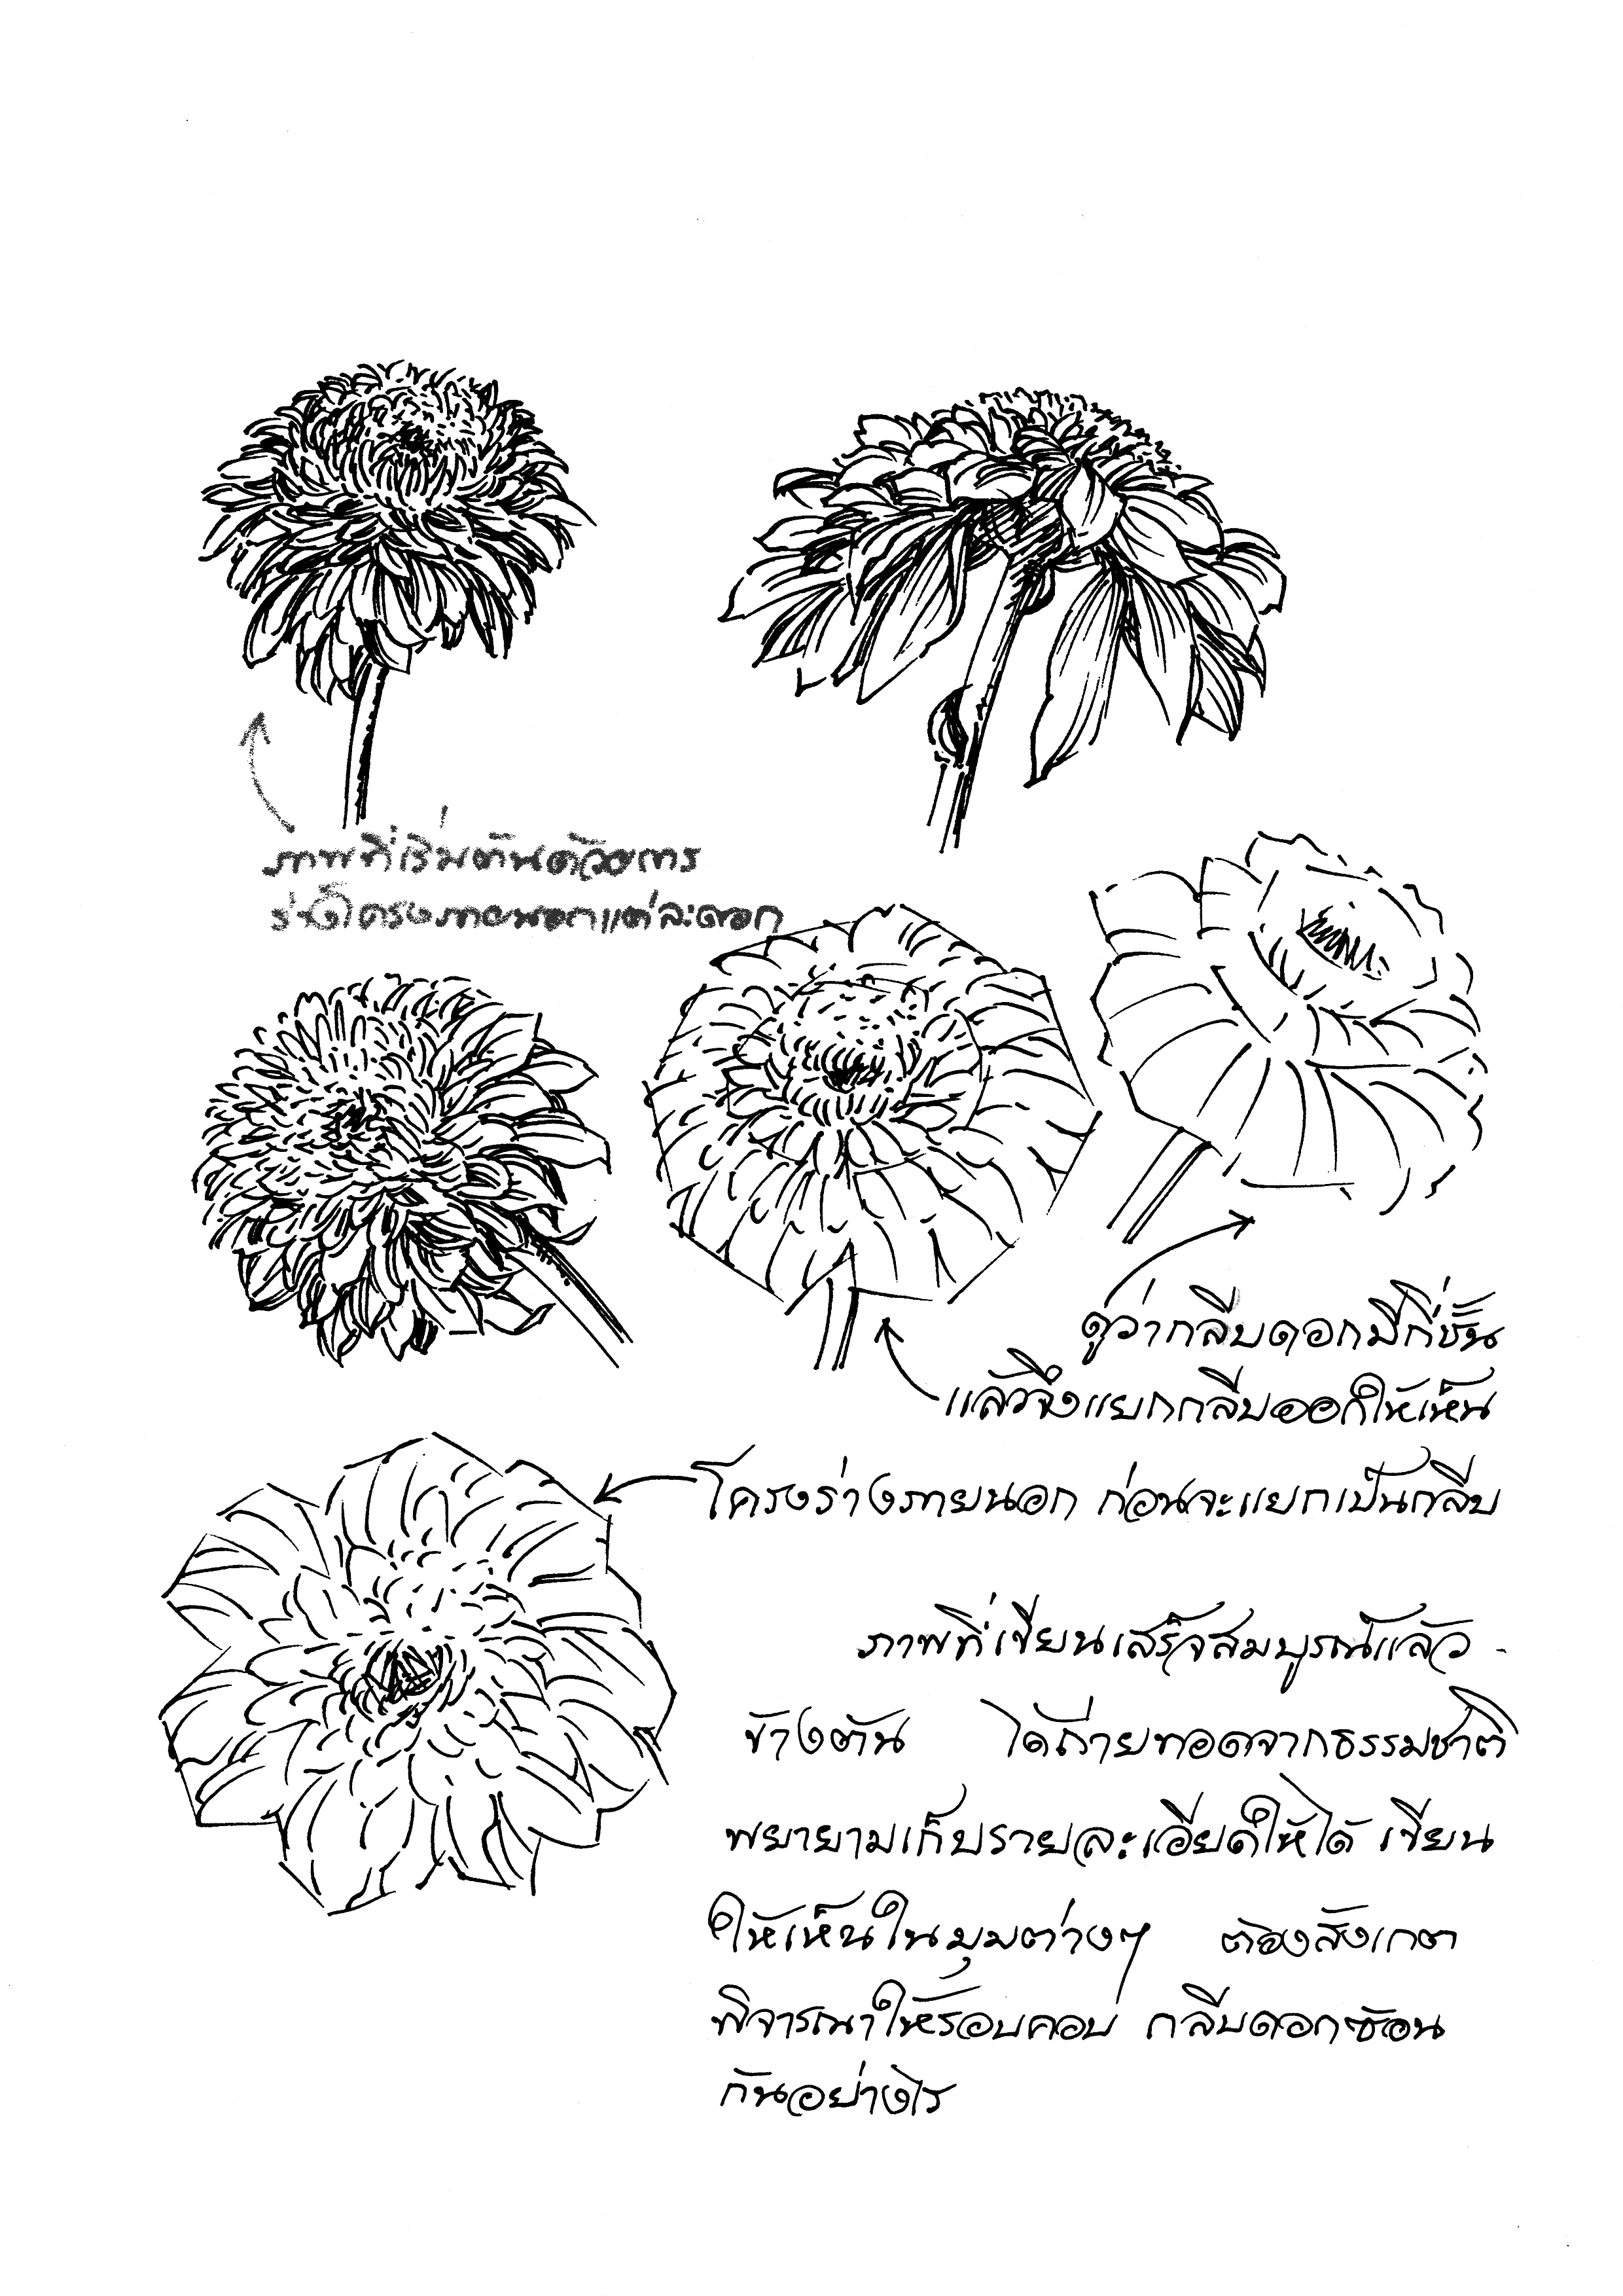 ภาพที่เริ่มต้นด้วยการ
ร่างโครงภายนอกแต่ละดอก
ดูว่ากลีบดอกมีกี่ชั้น
แล้วจึงแยกกลีบออกให้เห็น
โครงร่างภายนอก ก่อนจะแยกเป็นกลีบ
ภาพที่เขียนเสร็จสมบูรณ์แล้ว
ข้างต้น ได้ถ่ายทอดจากธรรมชาติ
พยายามเก็บรายละเอียดให้ได้ เขียน
ให้เห็นในมุมต่างๆ ต้องสังเกต
พิจารณาให้รอบคอบ กลีบดอกซ้อน
กันอย่างไร